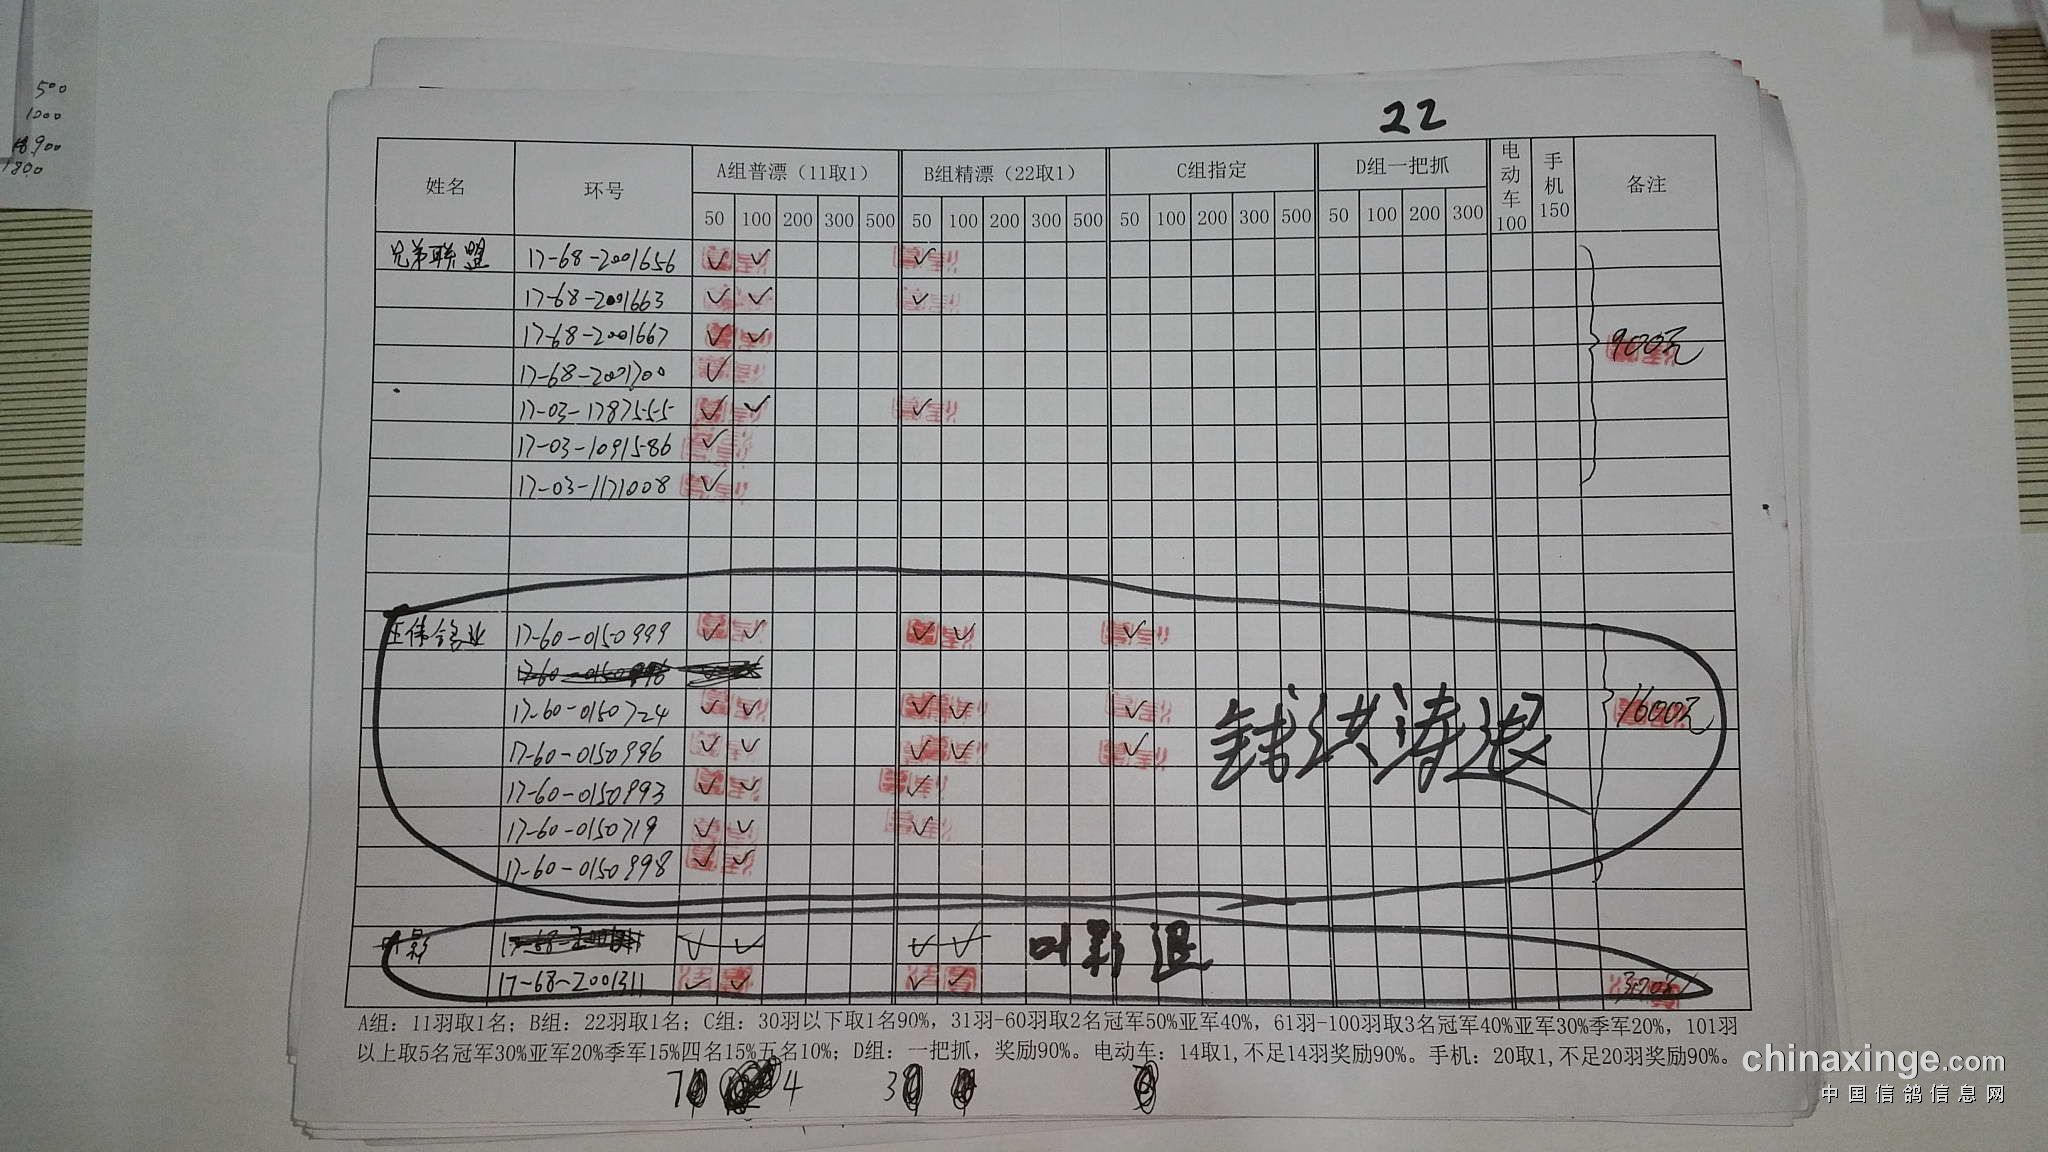 500
1000
18.00
22
姓名 环号 A组普漂（11取1） B组精漂（22取1） C组指定 D组一把抓 电动车100 手机150 备注
50 100 200 300 500 50 100 200 300 500 50 100 200 300 500 50 100 200 300
兄弟联盟 17-68-2001656 ✓ ✓ ✓
17-68-2001663 ✓ ✓ ✓
17-68-2001667 ✓ ✓ 900元
17-68-2001700 ✓
17-03-1787555 ✓ ✓ ✓
17-03-1091586 ✓
17-03-1171008 ✓
17-60-0150999 ✓ ✓ ✓ ✓ ✓
17-60-0150724 ✓ ✓ ✓ ✓ ✓ 钱洪涛退 1600元
17-60-0150996 ✓ ✓ ✓ ✓ ✓
17-60-0150993 ✓ ✓ ✓
17-60-0150719 ✓ ✓ ✓
17-60-0150998 ✓ ✓
叶影 ✓ ✓ ✓ ✓ 叶影退
17-68-2001311 ✓ ✓ ✓ ✓ 300元
A组：11羽取1名；B组：22羽取1名；C组：30羽以下取1名90%，31羽-60羽取2名冠军50%亚军40%，61羽-100羽取3名冠军40%亚军30%季军20%，101羽
以上取5名冠军30%亚军20%季军15%四名15%五名10%；D组：一把抓，奖励90%。电动车：14取1,不足14羽奖励90%。手机：20取1,不足20羽奖励90%。
7 4 3
chinaxinge.com
中国信鸽信息网